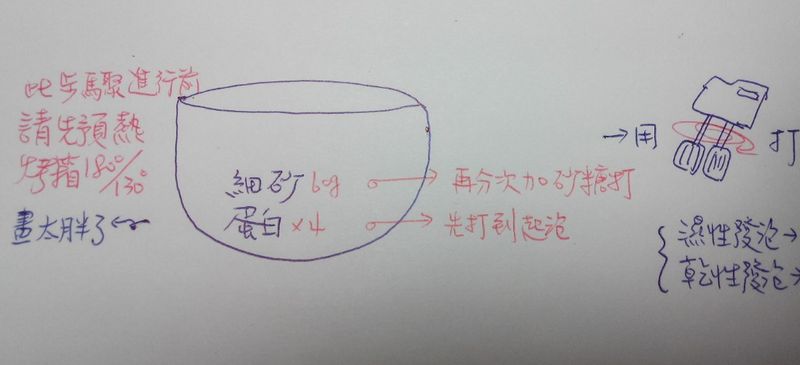 此步驟進行前
請先預熱
烤箱180°/130°
畫太胖了
細砂 60g → 再分次加砂糖打
蛋白×4 → 先打到起泡
→用 打
濕性發泡→
乾性發泡